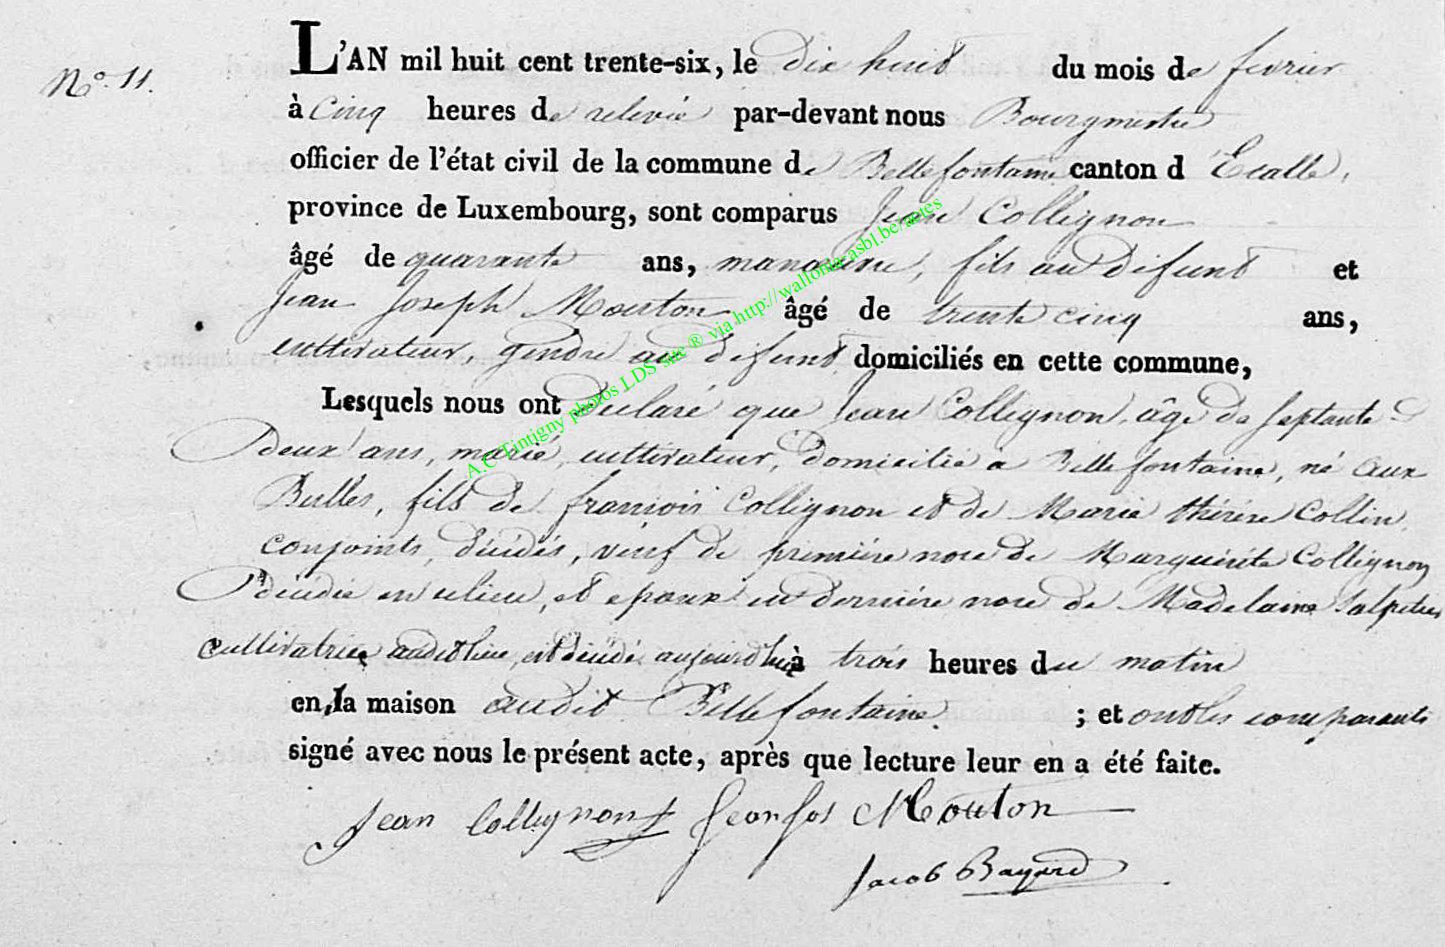 N.o 11.
L'AN mil huit cent trente-six, le dix huit du mois de fevrier
à cinq heures de relevée par-devant nous Bourgmestre
officier de l'état civil de la commune de Bellefontaine canton d'Etalle,
province de Luxembourg, sont comparus Jean Collignon
âgé de quarante ans, manoeuvre, fils au défunt et
Jean Joseph Mouton âgé de trente cinq ans,
cultivateur, gendre au défunt domiciliés en cette commune,
Lesquels nous ont declaré que Jean Collignon, âgé de septante
deux ans, marié, cultivateur, domicilié a Bellefontaine, né aux
Bulles, fils de françois Collignon et de Marie thérèse Collin
conjoints, décédés, veuf de première noce de Marguerite Collignon
décédée en ce lieu, et epoux en dernière noce de Madelaine
cultivatrice audit lieu, est décédé aujourd'hui à trois heures du matin
en la maison audit Bellefontaine ; et ont les comparants
signé avec nous le présent acte, après que lecture leur en a été faite.
Jean Collignon Jean Jos Mouton
Jacob Bayard
A.C Tintigny photos LDS-suc ® via http://wallonia-asbl.be/actes